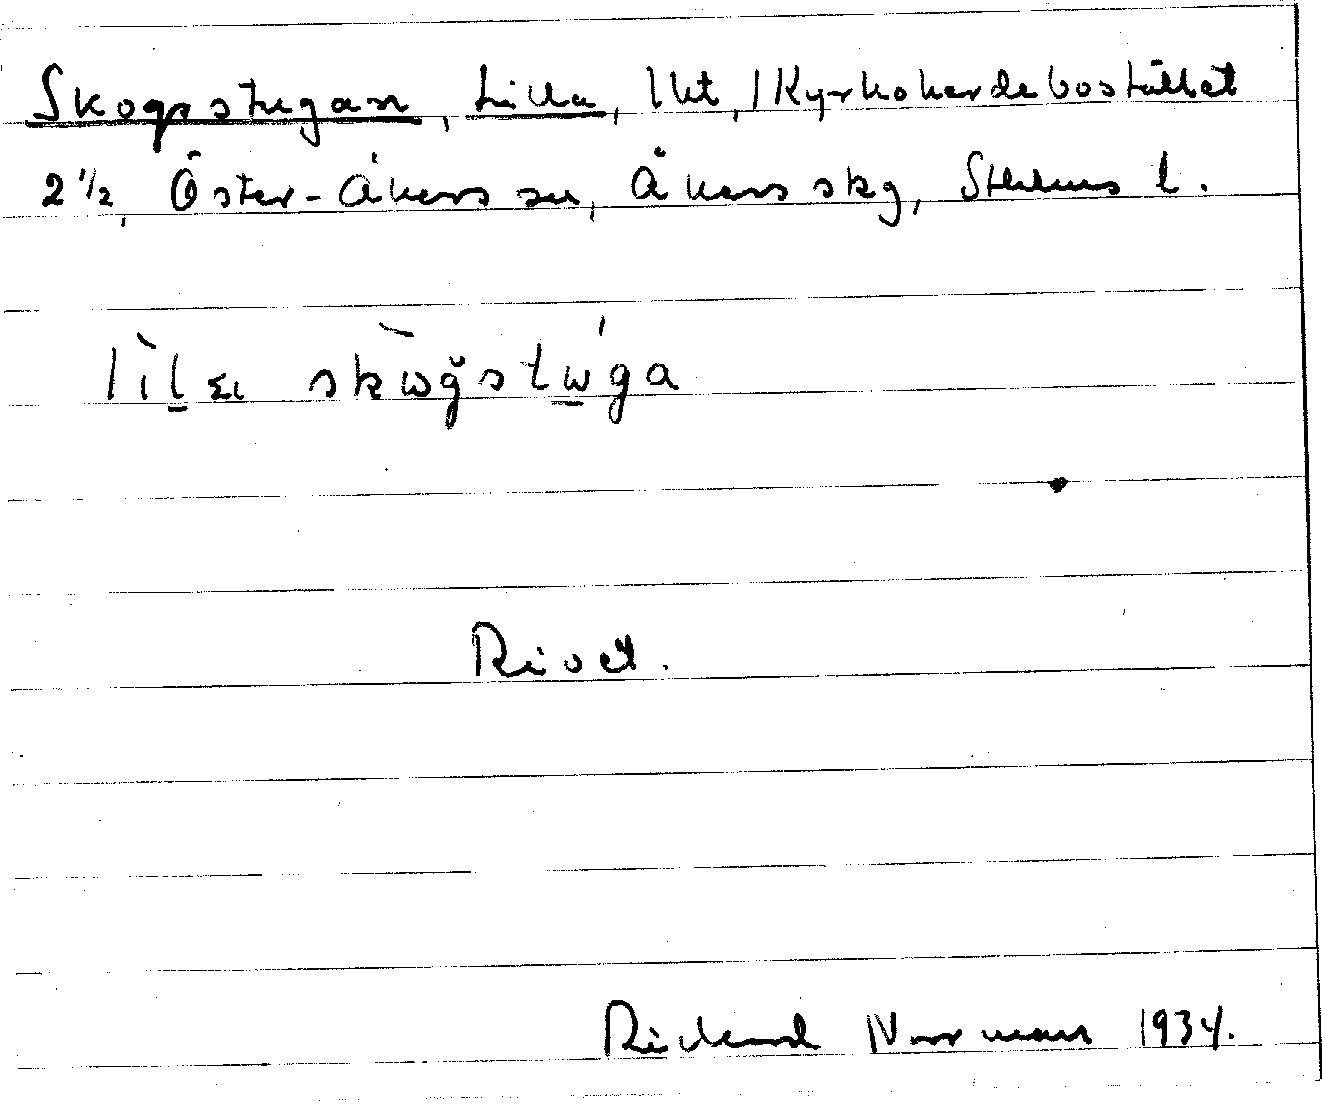 Skogsstugan, Lilla, lht, /Kyrkoherdebostället
2 1/2, Öster-Åkers sn, Åkers skg, Sthlms l.
skoğstuga
Rivet.
Rickard Norrman 1934.